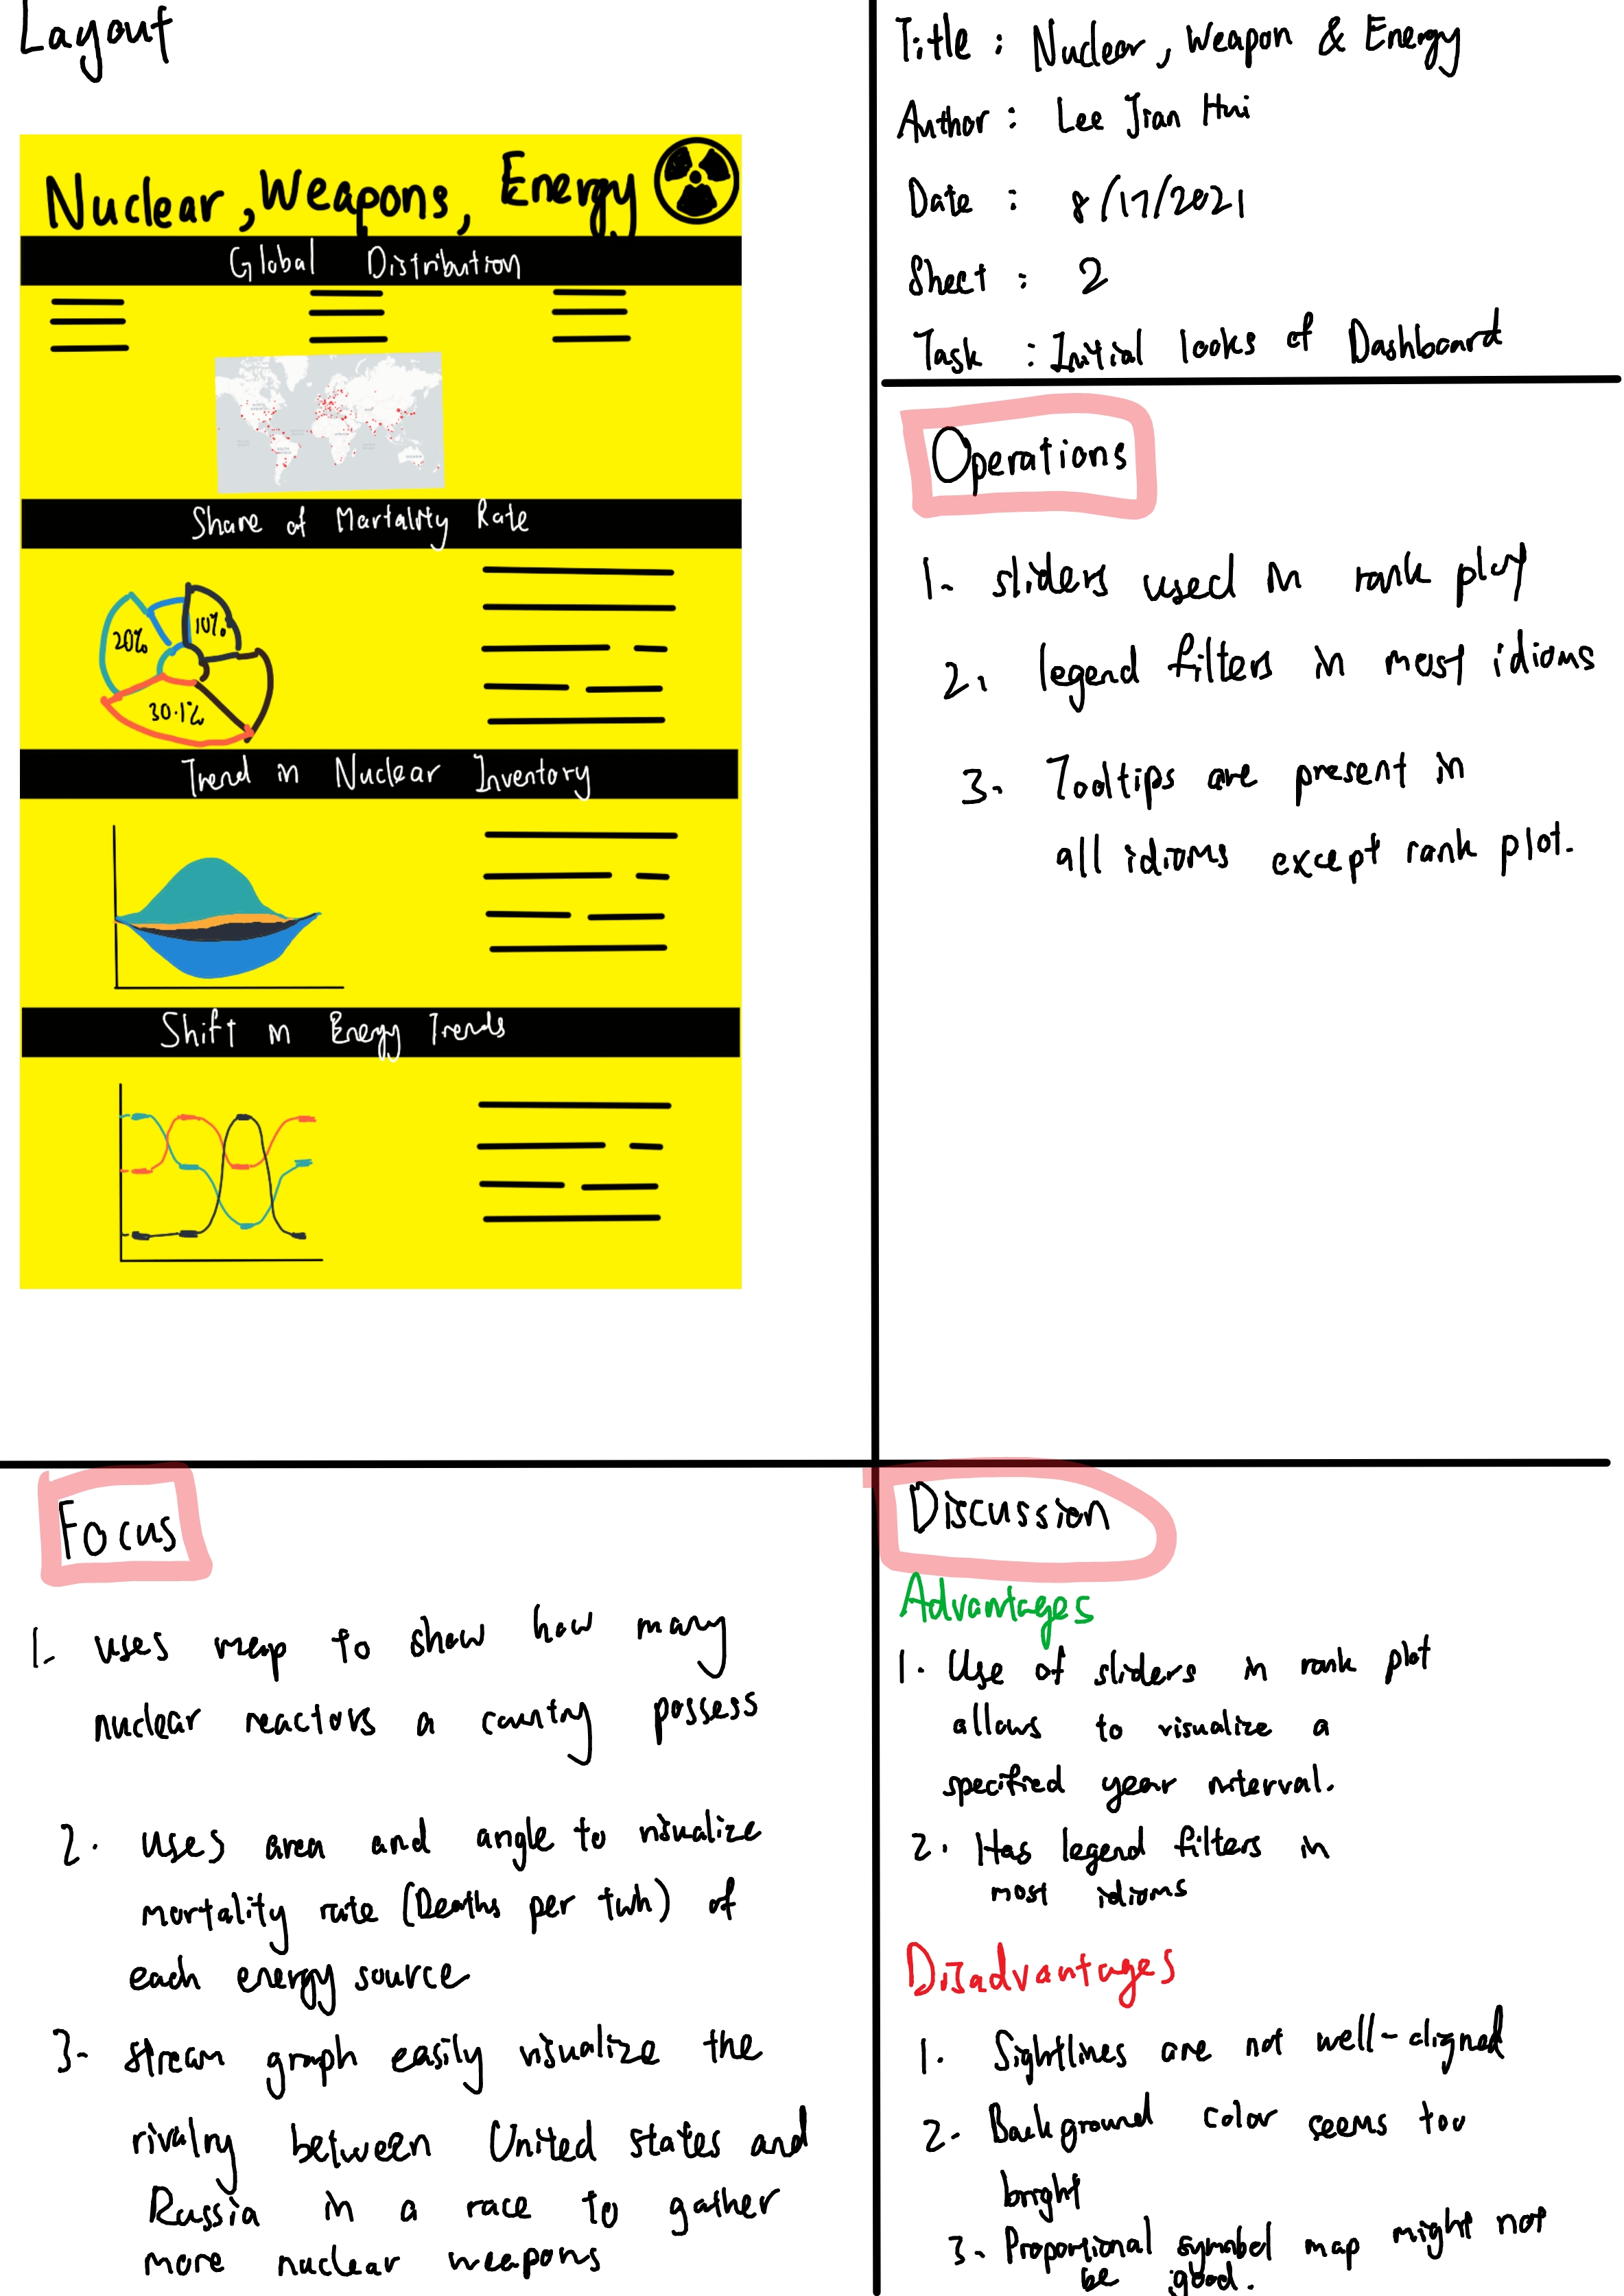 Layout
Nuclear, Weapons, Energy
Global Distribution
Share of Martality Rate
20%
10%
30.1%
Trend in Nuclear Inventory
Shift in Energy Trends
Title : Nuclear, Weapon & Energy
Author : Lee Jian Hui
Date : 8/17/2021
Sheet : 2
Task : Initial looks of Dashboard
Operations
1- sliders used in rank plot
2. legend filters in most idioms
3- Tooltips are present in
all idioms except rank plot.
Focus
1. uses map to show how many
nuclear reactors a country possess
2. uses area and angle to visualize
mortality rate (Deaths per twh) of
each energy source
3- stream graph easily visualize the
rivalry between United states and
Russia in a race to gather
more nuclear weapons
Discussion
Advantages
1. Use of sliders in rank plot
allows to visualize a
specified year interval.
2. Has legend filters in
most idioms
Disadvantages
1. Sightlines are not well-aligned
2- Background color seems too
bright
3- Proportional symbol map might not
be good.